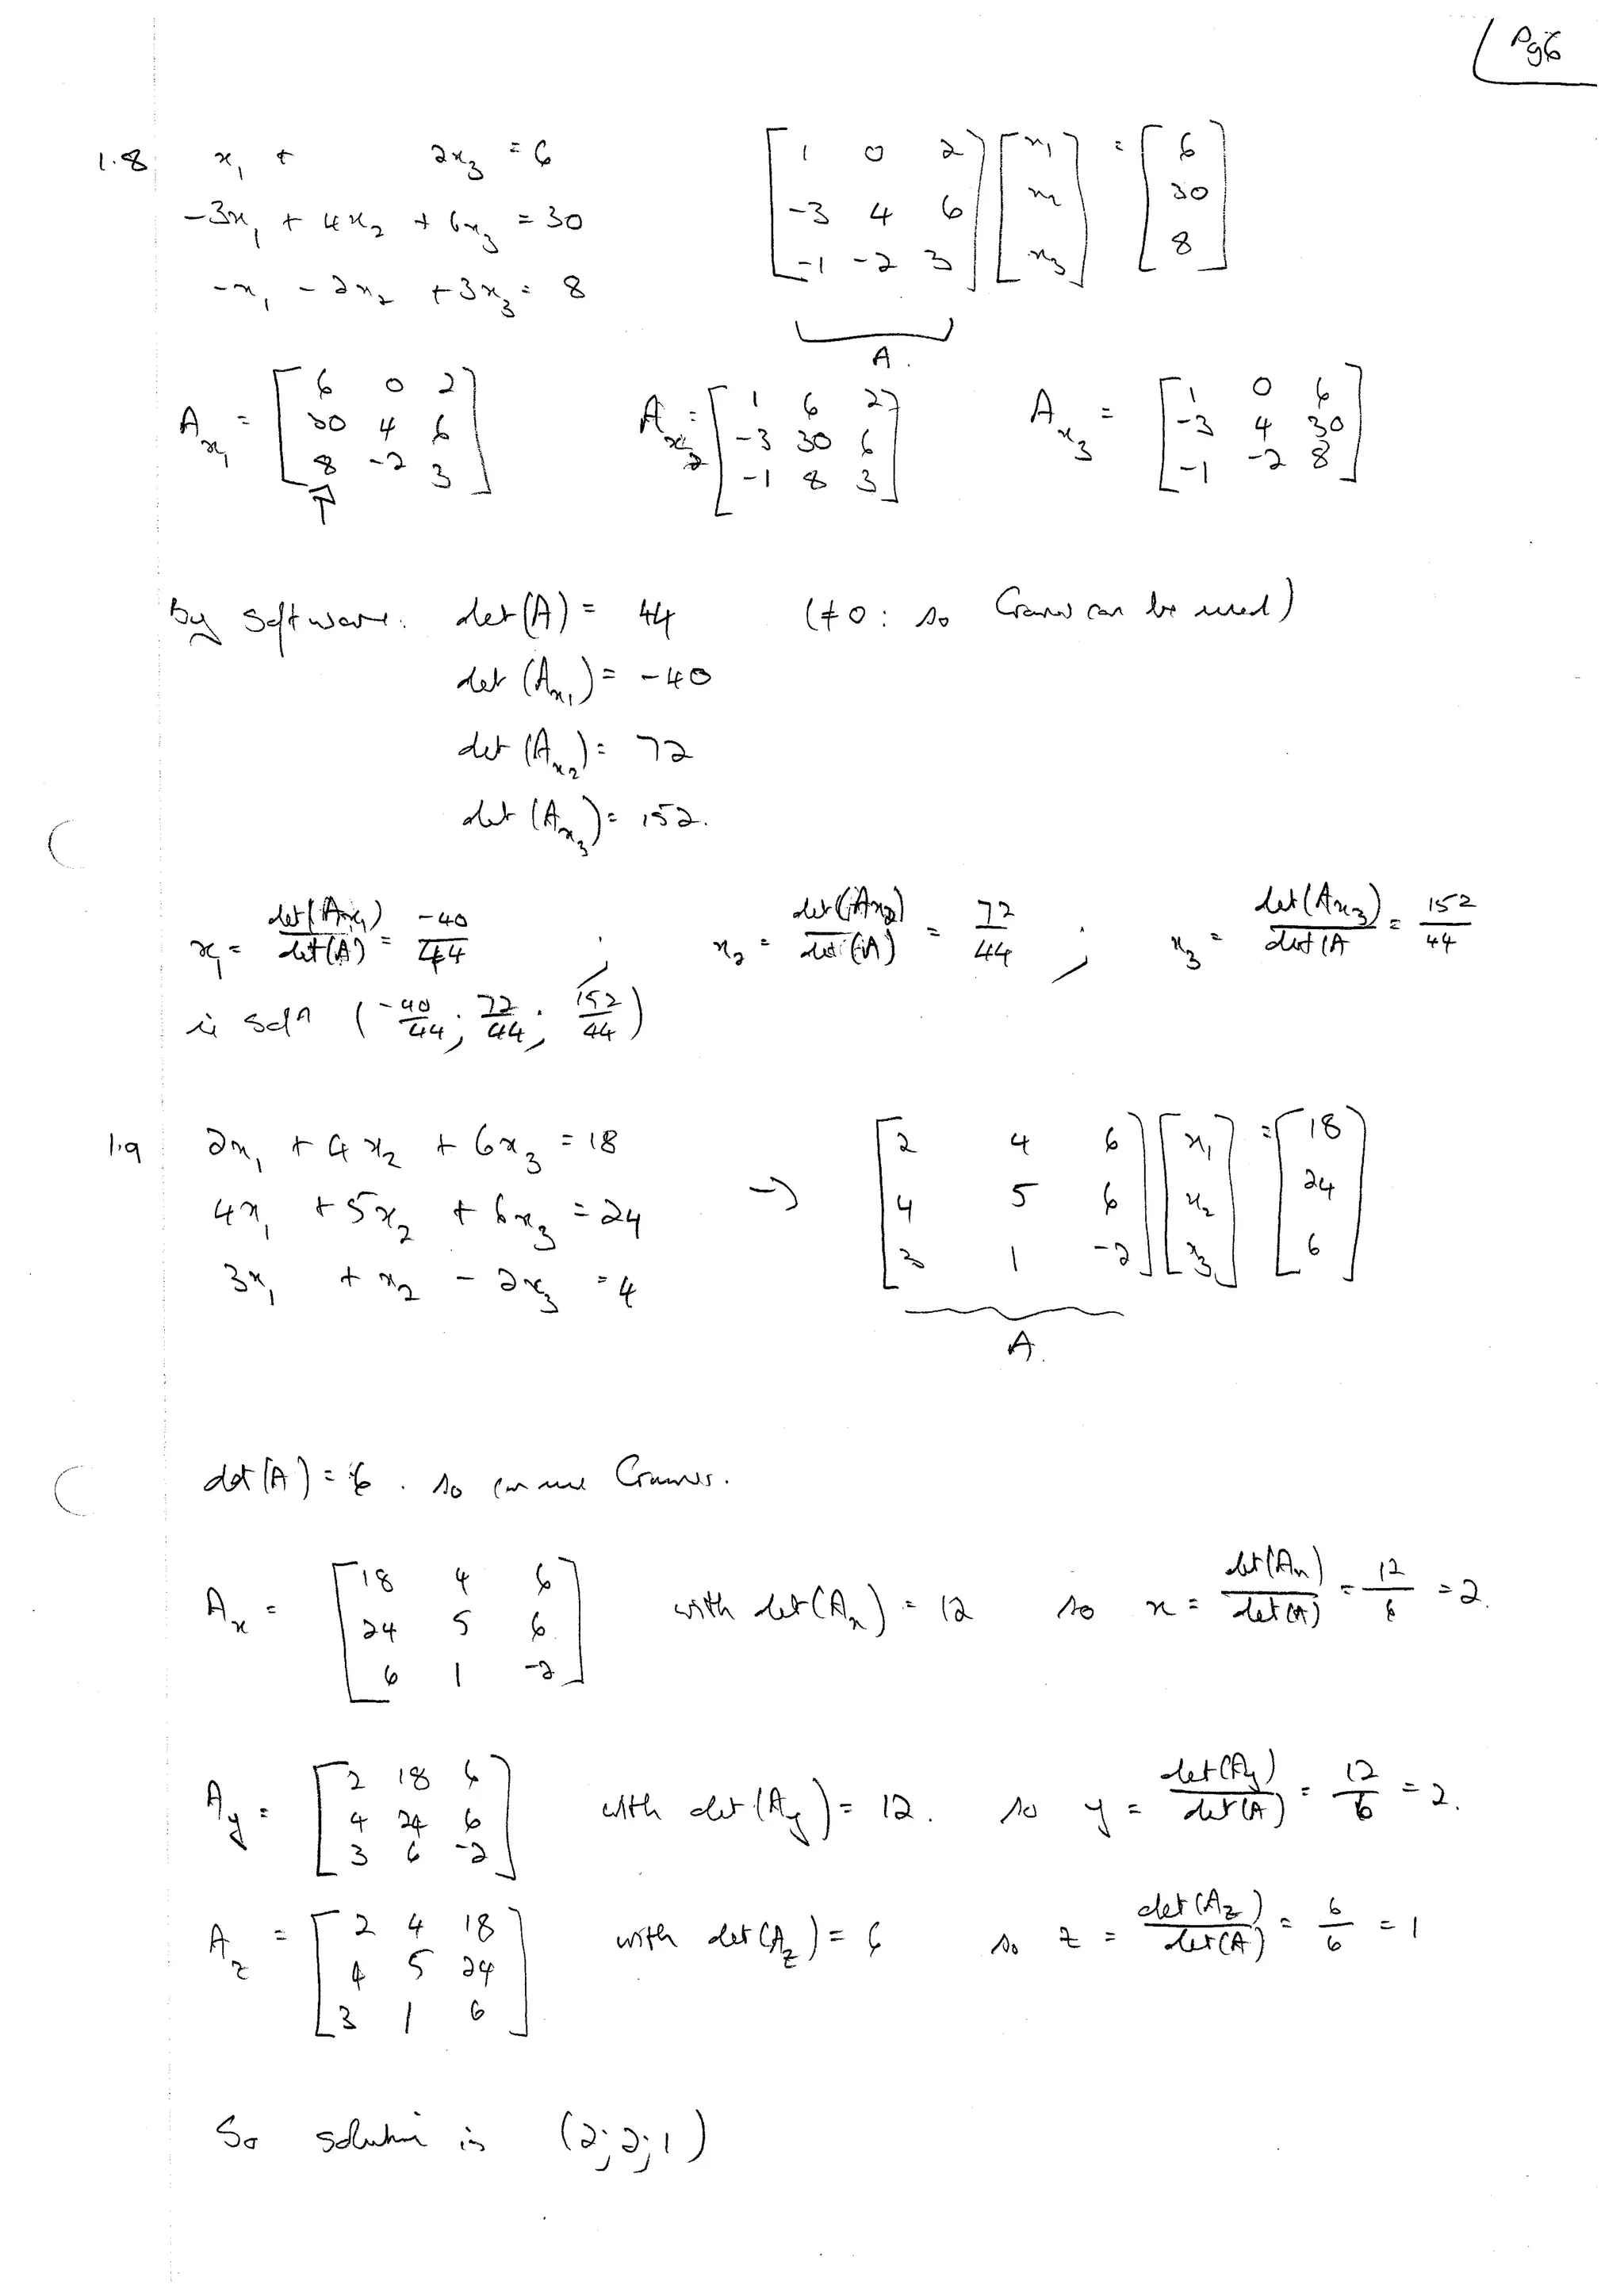 Pg6
1.8 x₁ + 2x₃ = 6 [1 0 2; -3 4 6; -1 -2 3] [x₁; x₂; x₃] = [6; 30; 8]
-3x₁ + 4x₂ + 6x₃ = 30
-x₁ - 2x₂ + 3x₃ = 8
A.
A_x₁ = [6 0 2; 30 4 6; 8 -2 3] A_x₂ = [1 6 2; -3 30 6; -1 8 3] A_x₃ = [1 0 6; -3 4 30; -1 -2 8]
↑
By software: det(A) = 44 (≠0: so Cramer can be used)
det(A_x₁) = -40
det(A_x₂) = 72
det(A_x₃) = 152.
x₁ = det(A_x₁)/det(A) = -40/44 ; x₂ = det(A_x₂)/det(A) = 72/44 ; x₃ = det(A_x₃)/det(A = 152/44
ie solⁿ (-40/44; 72/44; 152/44)
1.9 2x₁ + 4x₂ + 6x₃ = 18 → [2 4 6; 4 5 6; 3 1 -2] [x₁; x₂; x₃] = [18; 24; 6]
4x₁ + 5x₂ + 6x₃ = 24
3x₁ + x₂ - 2x₃ = 4
A.
det(A) = 6 . so can use Cramers.
A_x = [18 4 6; 24 5 6; 6 1 -2] with det(A_x) = 12 so x = det(A_x)/det(A) = 12/6 = 2.
A_y = [2 18 6; 4 24 6; 3 6 -2] with det(A_y) = 12. so y = det(A_y)/det(A) = 12/6 = 2.
A_z = [2 4 18; 4 5 24; 3 1 6] with det(A_z) = 6 so z = det(A_z)/det(A) = 6/6 = 1
So solution is (2; 2; 1)